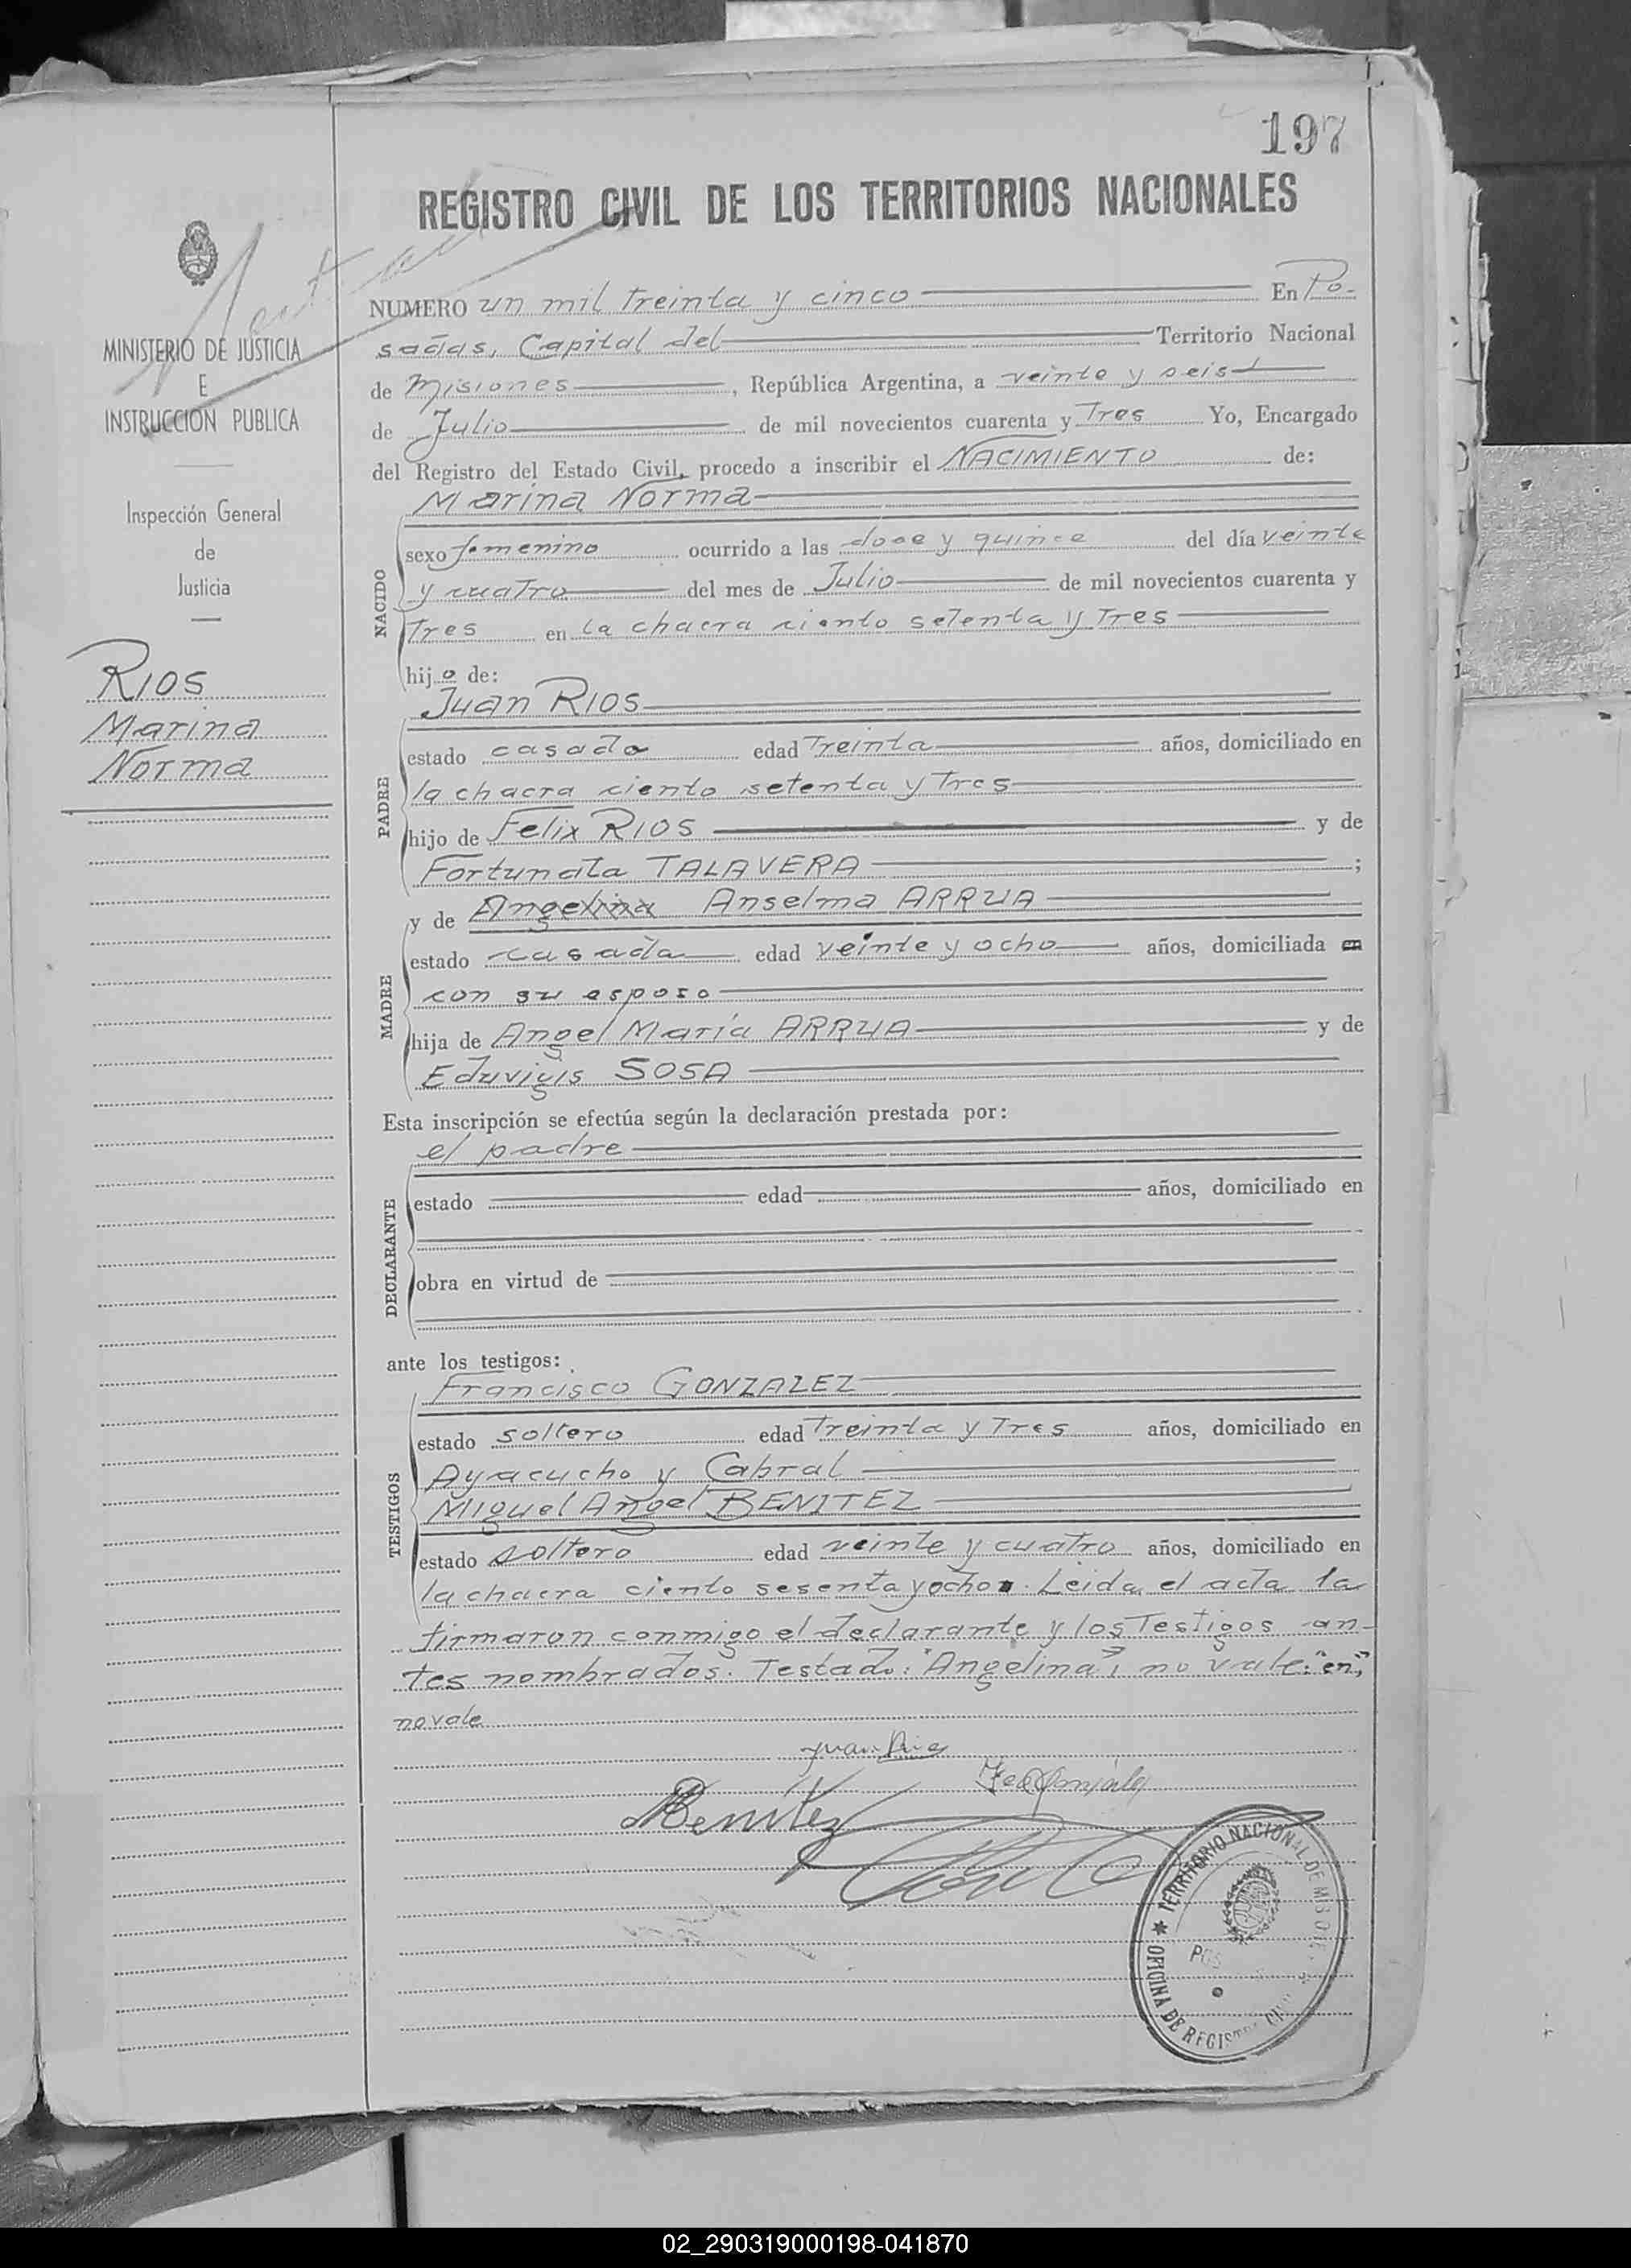 197
REGISTRO CIVIL DE LOS TERRITORIOS NACIONALES
MINISTERIO DE JUSTICIA
E
INSTRUCCION PUBLICA
Inspección General
de
Justicia
RIOS
Marina
Norma
NUMERO un mil treinta y cinco En Po-
sadas, Capital del Territorio Nacional
de Misiones, República Argentina, a veinte y seis
de Julio de mil novecientos cuarenta y Tres Yo, Encargado
del Registro del Estado Civil, procedo a inscribir el NACIMIENTO de:
Marina Norma
NACIDO
sexo femenino ocurrido a las doce y quince del día veinte
y cuatro del mes de Julio de mil novecientos cuarenta y
Tres en la chacra ciento setenta y Tres
hija de:
Juan RIOS
PADRE
estado casado edad Treinta años, domiciliado en
la chacra ciento setenta y Tres
hijo de Felix RIOS y de
Fortunata TALAVERA;
y de Angelina Anselma ARRUA
MADRE
estado casada edad veinte y ocho años, domiciliada en
con su esposo
hija de Angel María ARRUA y de
Eduvigis SOSA
Esta inscripción se efectúa según la declaración prestada por:
el padre
DECLARANTE
estado edad años, domiciliado en
obra en virtud de
ante los testigos:
Francisco GONZALEZ
TESTIGOS
estado soltero edad Treinta y Tres años, domiciliado en
Ayacucho y Cabral
Miguel Angel BENITEZ
estado soltero edad veinte y cuatro años, domiciliado en
la chacra ciento sesenta y ocho. Leida el acta la
firmaron conmigo el declarante y los Testigos an-
tes nombrados. Testado: "Angelina", no vale: "en",
no vale
Juan Rios
Fco Gonzalez
MBenitez
TERRITORIO NACIONAL DE MISIONES
POS
OFICINA DE REGISTRO CIVIL
02_290319000198-041870